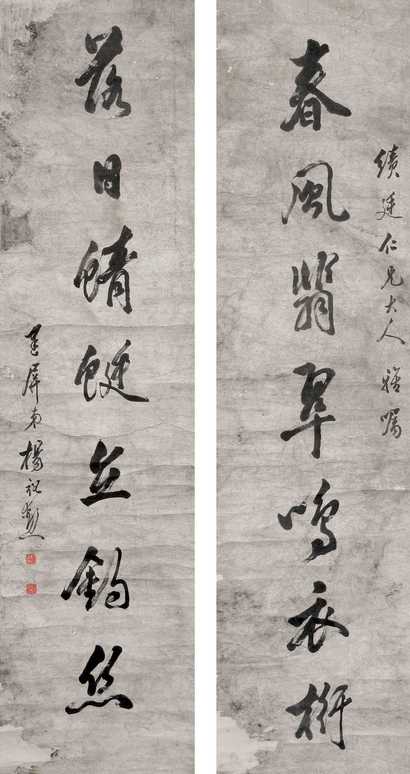 春風翡翠鳴衣桁
績廷仁兄大人雅囑
落日蜻蜓立釣絲
屏弟楊